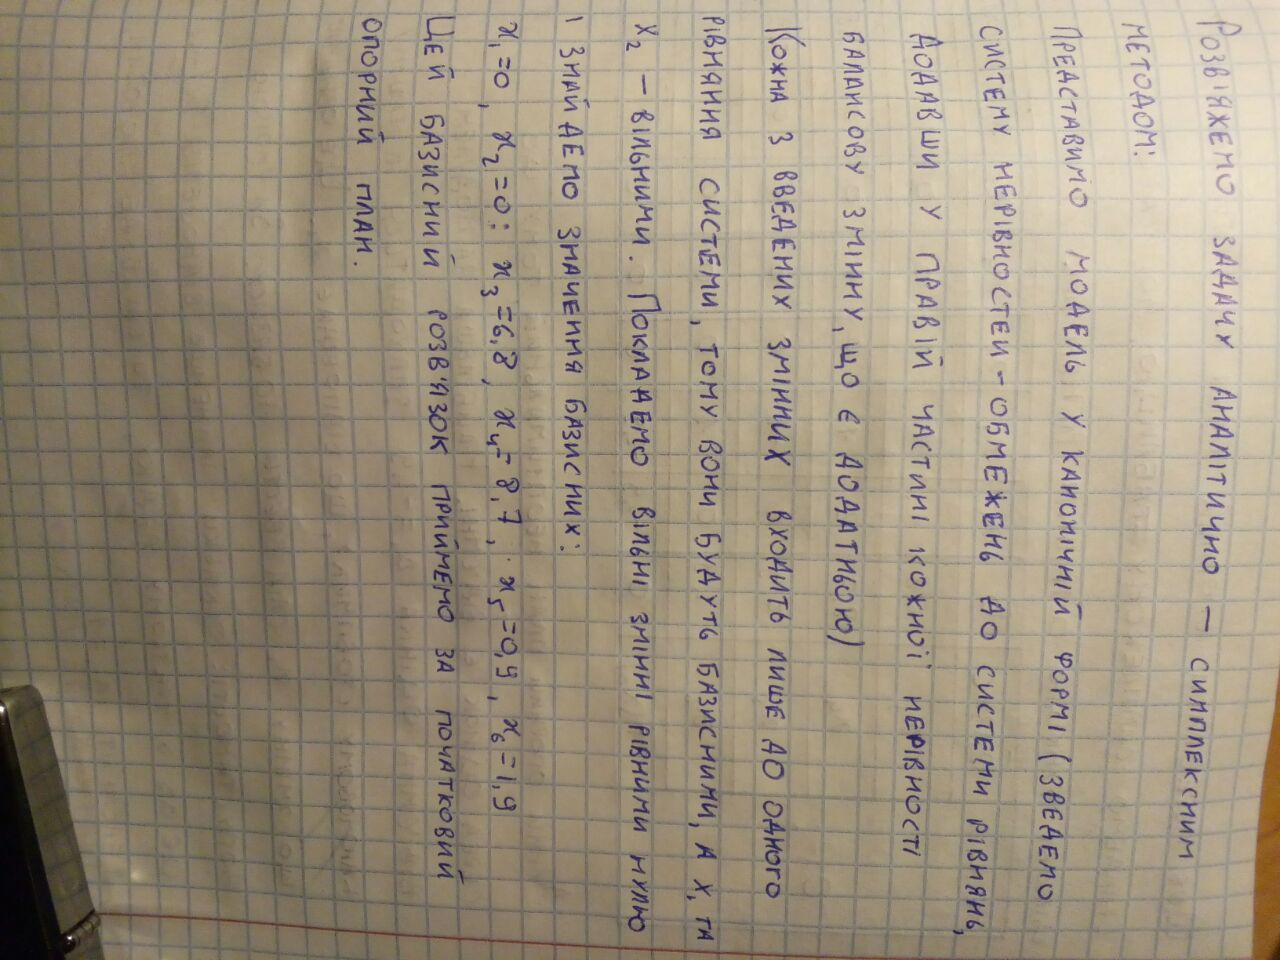 Розвіяжемо задачу аналітично – симплексним
методом:
Представимо модель у канонічній формі (зведемо
систему нерівностей-обмежень до системи рівнянь,
додавши у правій частині кожної нерівності
балансову змінну, що є додатньою)
Кожна з введених змінних входить лише до одного
рівняння системи, тому вони будуть базисними, а x₁ та
x₂ – вільними. Покладемо вільні змінні рівними нулю
і знайдемо значення базисних:
x₁=0, x₂=0: x₃=6,8, x₄=8,7, x₅=0,9, x₆=1,9
Цей базисний розв'язок приймемо за початковий
опорний план.